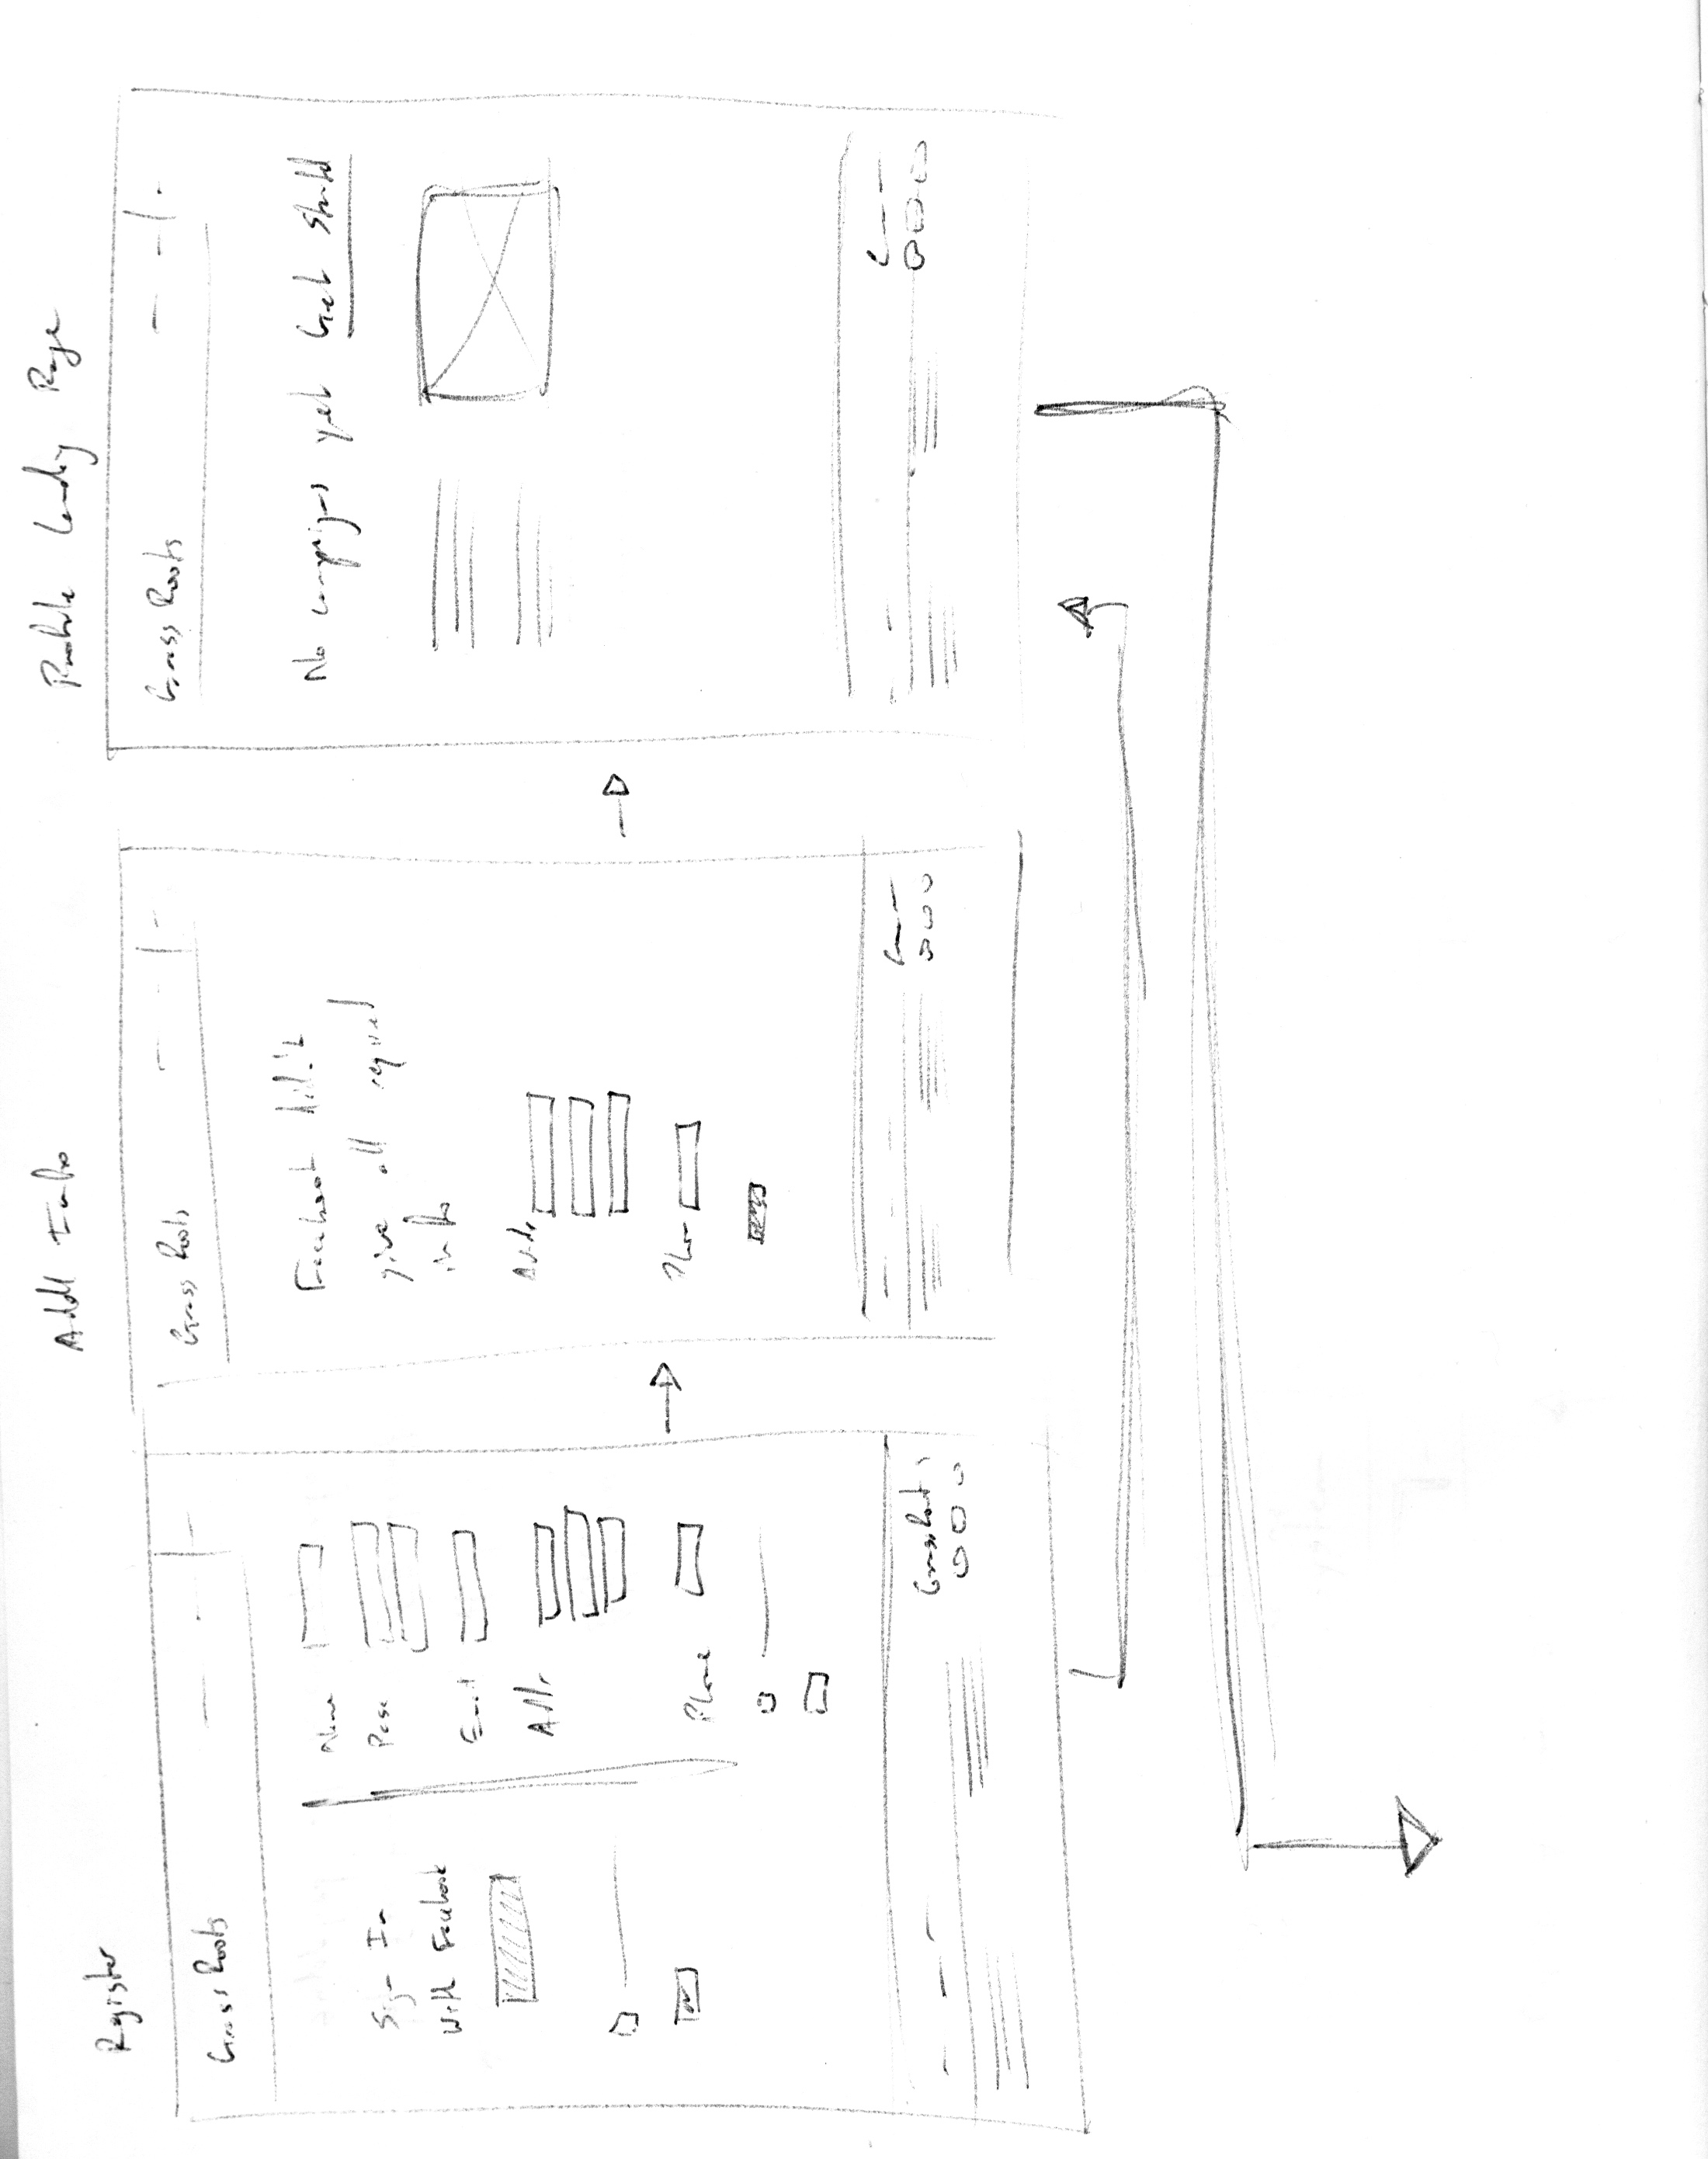 Register
Grass Roots
Sign In
with Facebook
Name
Pass
Email
Addr
Phone
GrassRoots
Addl Info
Grass Roots
Facebook didn't
give all req'd
info
Addr
Phone
Landing Page
Grass Roots
No campaigns yet Get Started